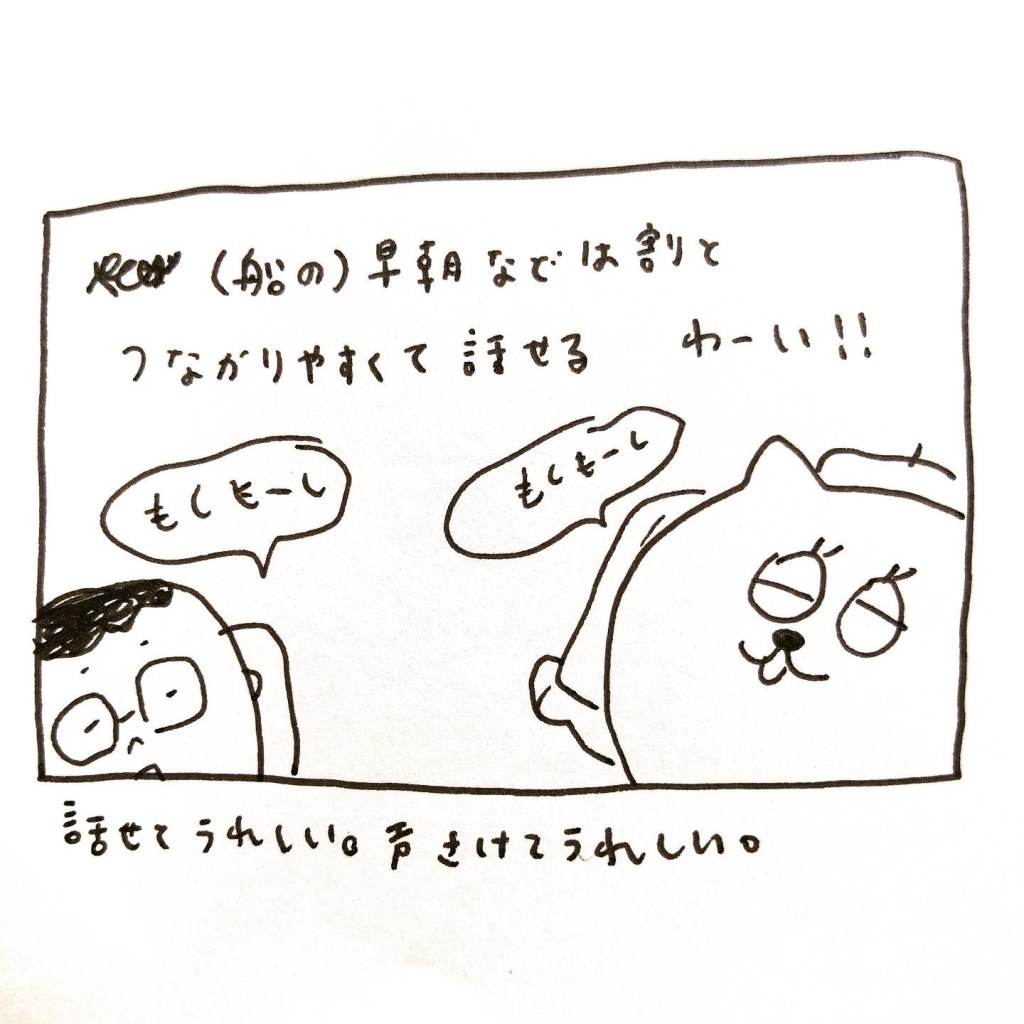 (船の)早朝などは割と
つながりやすくて話せる わーい!!
もしもーし
もしもーし
話せてうれしい。声きけてうれしい。